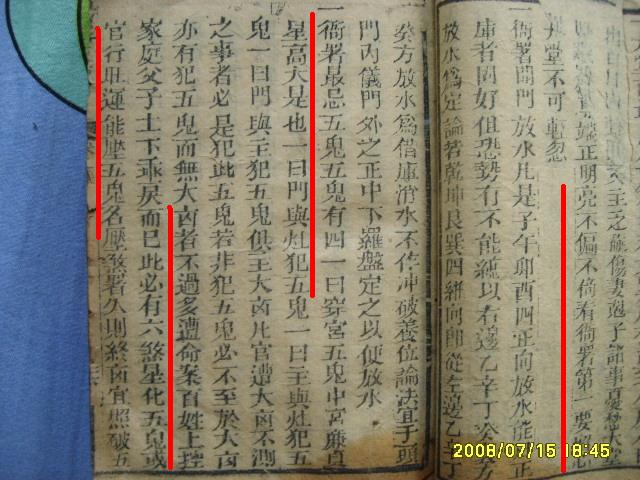 端正明亮不偏不倚看衙署第一要
堂不可輕忽
一衙署開門放水凡是子午卯酉四正向放水能正
庫者固好但恐勢有不能總以右邊乙辛丁癸
放水爲定論若乾坤艮巽四維向即從左邊乙辛丁
癸方放水爲借庫消水不作冲破養位論法宜于頭
門內儀門外之正中下羅盤定之以便放水
一衙署最忌五鬼五鬼有四一曰穿宮五鬼中宮廉貞
星高大是也一曰門與灶犯五鬼一曰主與灶犯五
鬼一曰門與主犯五鬼俱主大凶凡官遭大凶不測
之事者必是犯此五鬼若非犯五鬼必不至於大凶
亦有犯五鬼而無大凶者不過多遭命案百姓上控
家庭父子上下乖戾而已此必有六煞星化五鬼或
官行旺運能壓五鬼名壓煞署久則終凶宜照破五
2008/07/15 18:45